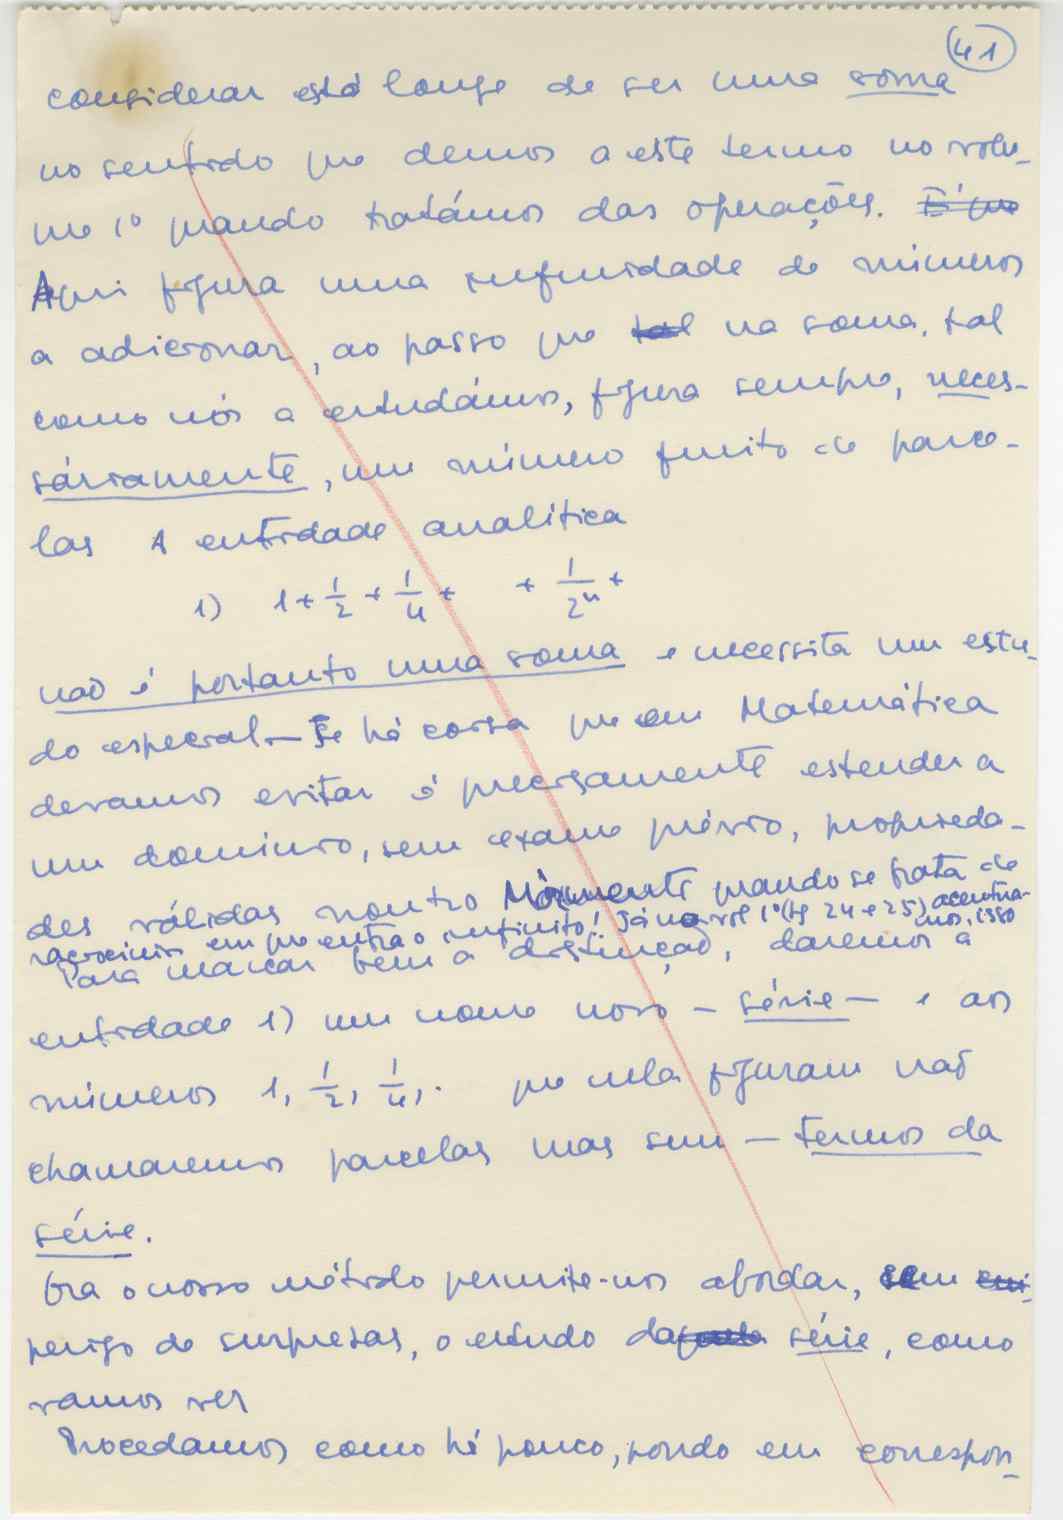 41
considerar está longe de ser uma soma
no sentido que demos a este termo no volu-
me 1º quando tratámos das operações. É que
Aqui figura uma infinidade de números
a adicionar, ao passo que tal na soma, tal
como nós a estudámos, figura sempre, neces-
sáriamente, um número finito de parce-
las A entidade analítica
1) 1 + 1/2 + 1/4 + + 1/2ⁿ +
não é portanto uma soma e necessita um estu-
do especial. — Se há coisa que em Matemática
devamos evitar é precisamente estender a
um domínio, sem exame prévio, proprieda-
des válidas noutro Mòrmente quando se trata de
raciocínios em que entra o infinito! Já no vol 1º (pg 24 e 25) acentuá-
mos, isso
Para marcar bem a distinção, daremos a
entidade 1) um nome novo — série — e aos
números 1, 1/2, 1/4, . que nela figuram não
chamaremos parcelas mas sim — termos da
série.
Ora o nosso método permite-nos abordar, sem
perigo de surpresas, o estudo da série, como
vamos ver
Procedamos como há pouco, pondo em correspon-